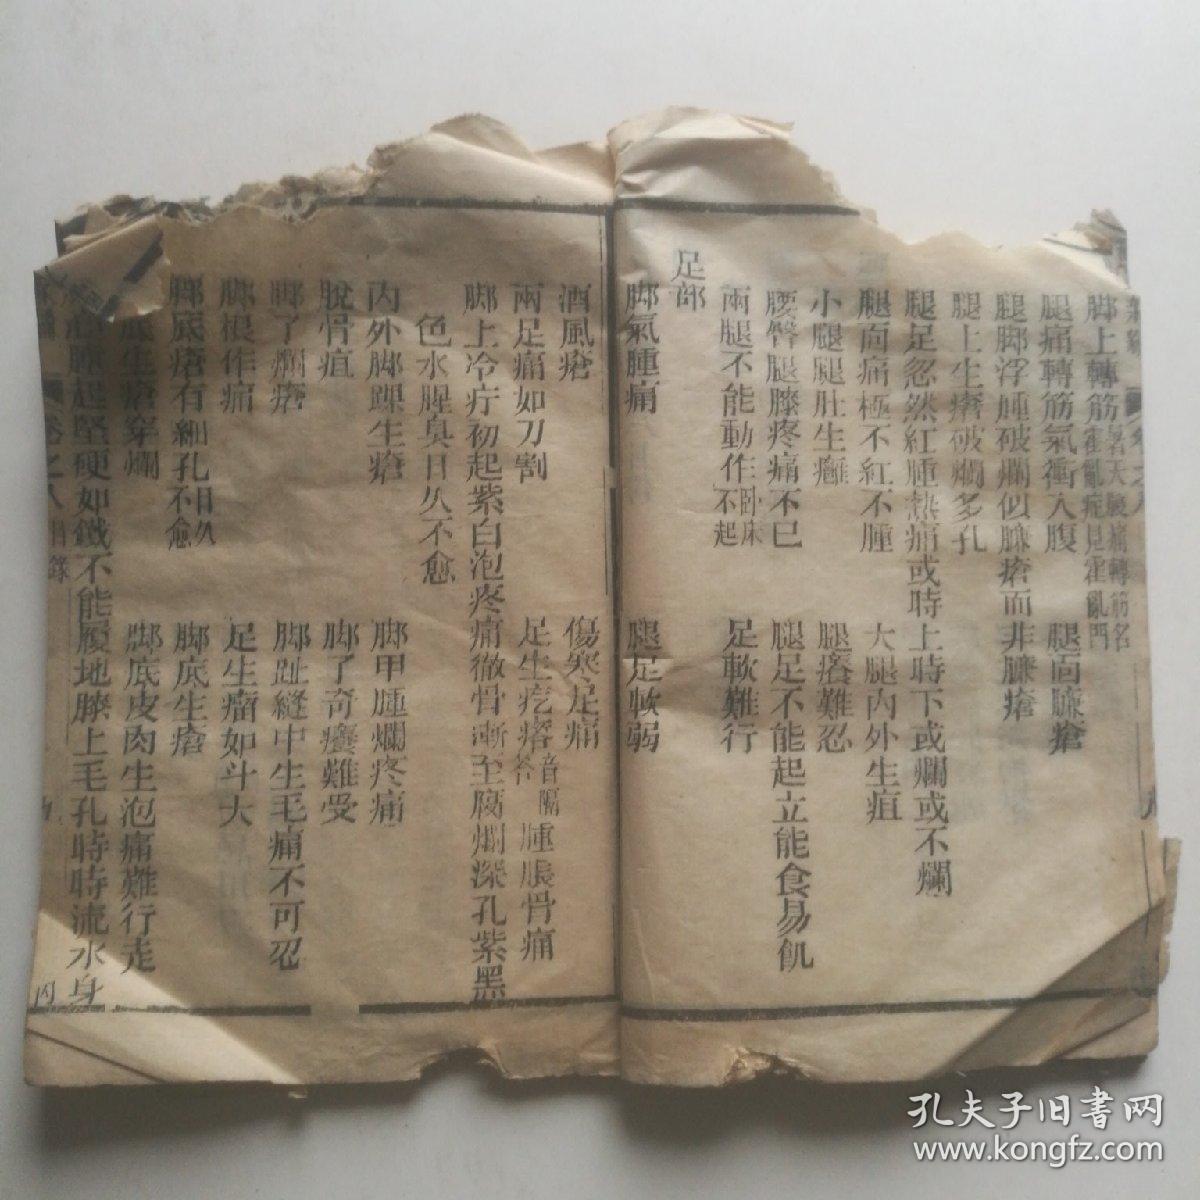 脚上轉筋 暑天腿痛轉筋名霍亂症見霍亂門
腿痛轉筋氣衝入腹 腿面臁瘡
腿脚浮腫破爛似臁瘡而非臁瘡
腿上生瘡破爛多孔
腿足忽然紅腫熱痛或時上時下或爛或不爛
腿面痛極不紅不腫 大腿內外生疽
小腿腿肚生癰 腿痿難忍
腰臀腿膝疼痛不已 腿足不能起立能食易飢
兩腿不能動作 卧床不起 足軟難行
足部
脚氣腫痛 腿足軟弱
酒風瘡 傷寒足痛
兩足痛如刀割 足生疙瘩 音隔答 腫脹骨痛
脚上冷疔初起紫白泡疼痛徹骨漸至腐爛深孔紫黑
色水腥臭日久不愈
內外脚踝生瘡 脚甲腫爛疼痛
脫骨疽 脚了奇癢難受
脚了爛瘡 脚趾縫中生毛痛不可忍
脚根作痛 足生瘤如斗大
脚底瘡有細孔日久不愈 脚底生瘡
底生瘡穿爛 脚底皮肉生泡痛難行走
心腫起堅硬如鐵不能履地膝上毛孔時時流水身
卷之八 目錄
孔夫子旧書网
www.kongfz.com